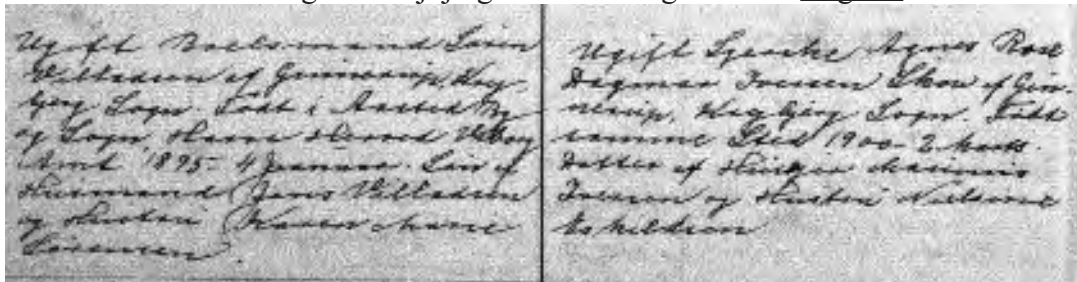 Ugift Boelsmand Søren
Villadsen af Ginnerup, Heg-
bjerg Sogn. Født i Aasted By
og Sogn, Harre Herred Viborg
Amt 1895 4 Januar. Søn af
Husmand Jens Villadsen
og Hustru Karen Marie
Sørensen.
Ugift Frøken Agnes Rose
Dagmar Iversen Skov af Gin-
nerup, Hegbjerg Sogn. Født
samme Sted 1900 2 Marts.
Datter af Marinus
Iversen og Hustru Nielsine
Eskildsen